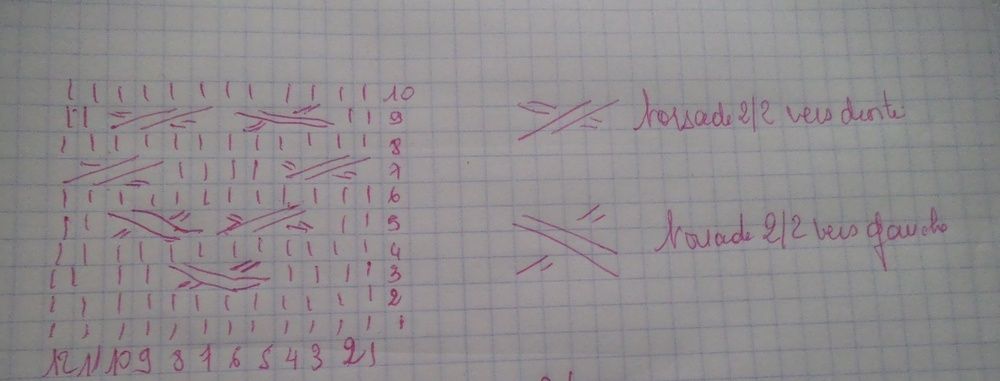 10
9
Torsade 2/2 vers droite
8
7
6
5
Torsade 2/2 vers gauche
4
3
2
1
12 11 10 9 8 7 6 5 4 3 2 1